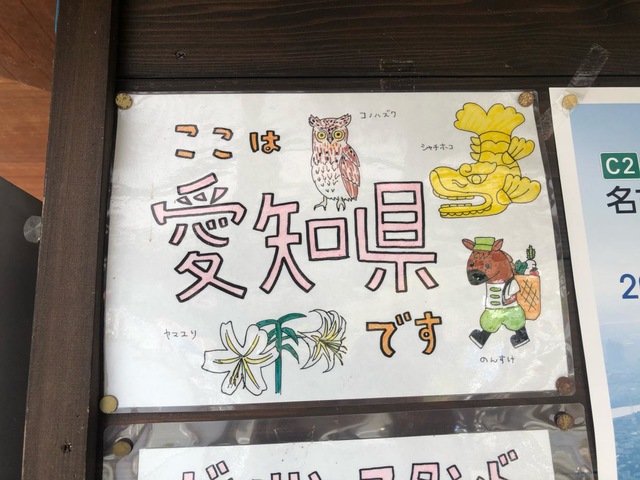 ここは
コノハズク
シャチホコ
愛知県
ヤマユリ
です
のんすけ
C2
名
20